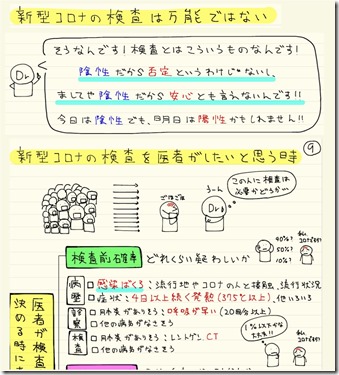 新型コロナの検査は万能ではない
そうなんです！検査とはこういうものなんです！
陰性だから否定というわけじゃないし、
ましてや陰性だから安心とも言えないんです!!
今日は陰性でも、明日は陽性かもしれません!!
Dr
新型コロナの検査を医者がしたいと思う時
⑨
ごほごほ
うーん
Dr
この人に検査は
必要かどうか…
検査前確率
どれくらい疑わしいか
90%?
50%?
10%?
私
コロナだわ!
病歴
感染ばくろ：流行地やコロナの人と接触、流行状況
症状：4日以上続く発熱(37.5℃以上)、他いろいろ
診察
肺炎がありそう：呼吸が早い(20回/分以上)
他の病気がなさそう
検査
肺炎がありそう：レントゲン、CT
他の病気がなさそう
1%以下かな
大丈夫!!
私
コロナだわ!
医者が検査
決める時に